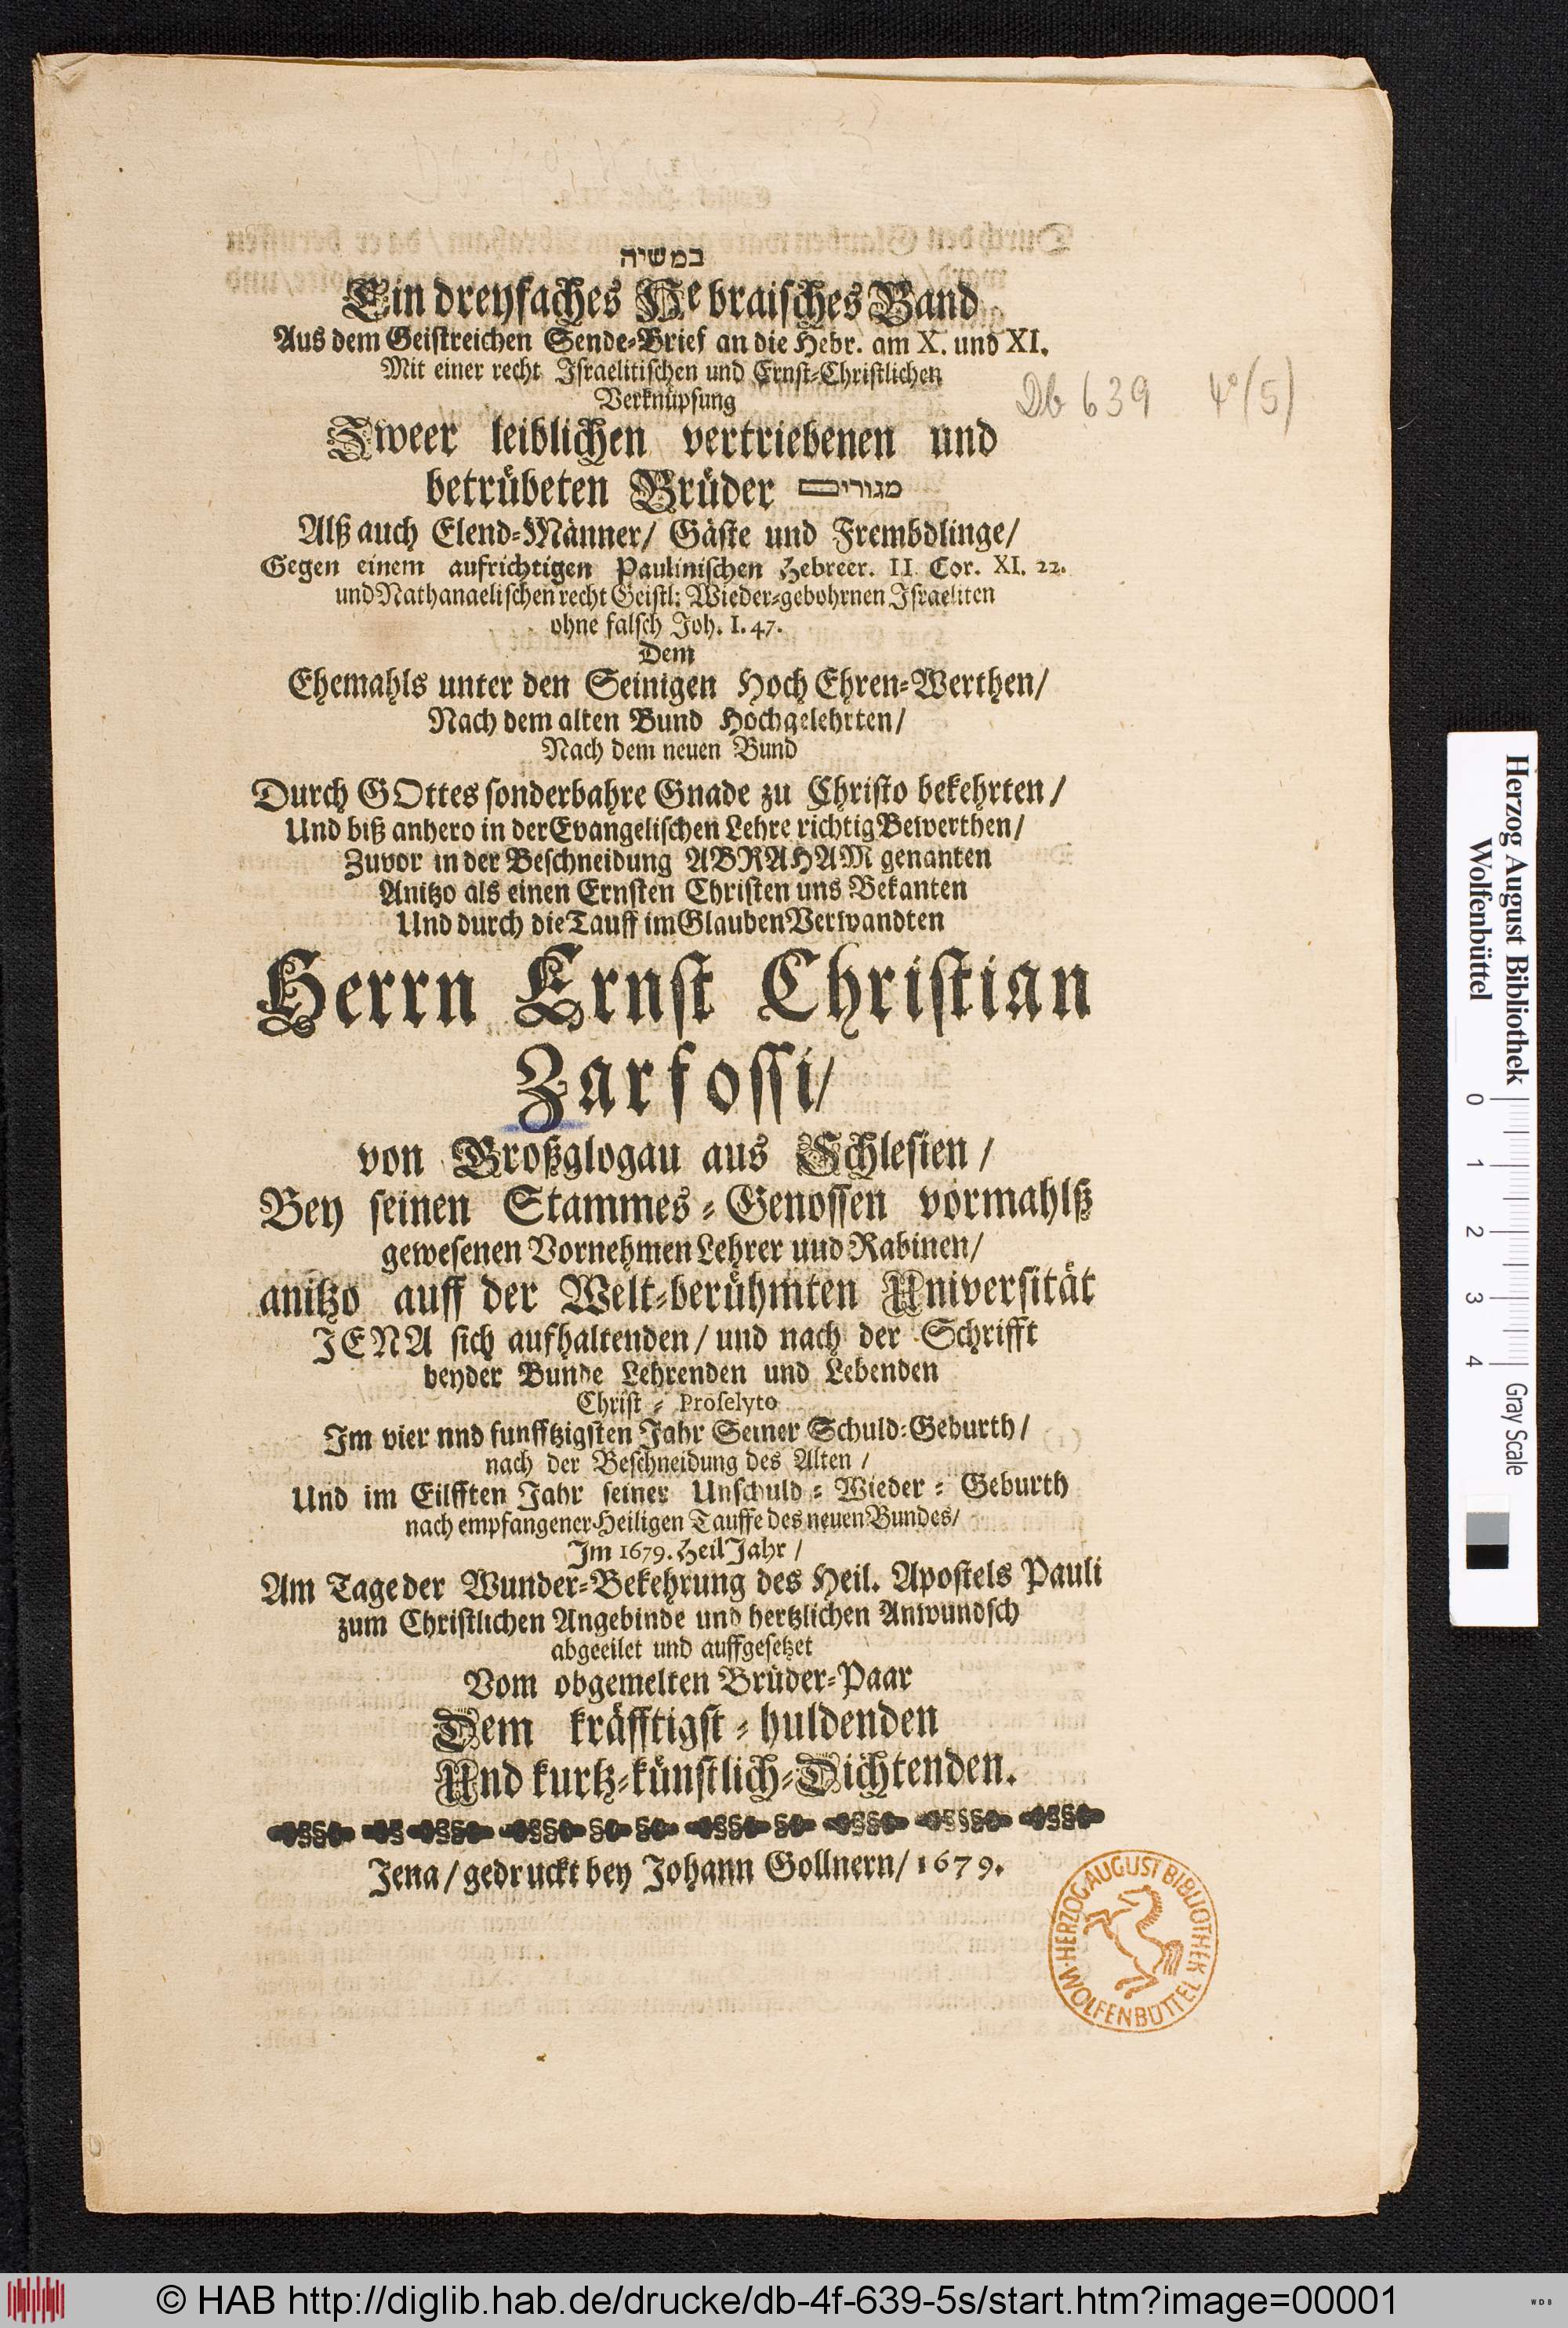 במשיה
Ein dreyfaches Hebraisches Band
Aus dem Geistreichen Sende-Brief an die Hebr. am X. und XI.
Mit einer recht Israelitischen und Ernst-Christlichen
Verknüpfung
Zweer leiblichen vertriebenen und
betrübeten Brüder מגורים
Alß auch Elend-Männer/ Gäste und Frembdlinge/
Gegen einem aufrichtigen Paulinischen Hebreer. II. Cor. XI. 22.
und Nathanaelischen recht Geistl: Wieder-gebohrnen Israeliten
ohne falsch Joh. I. 47.
Dem
Ehemahls unter den Seinigen Hoch Ehren-Werthen/
Nach dem alten Bund Hochgelehrten/
Nach dem neuen Bund
Durch GOttes sonderbahre Gnade zu Christo bekehrten/
Und biß anhero in der Evangelischen Lehre richtig Bewerthen/
Zuvor in der Beschneidung ABRAHAM genanten
Anitzo als einen Ernsten Christen uns Bekanten
Und durch die Tauff im Glauben Verwandten
Herrn Ernst Christian
Zarfossi/
von Großglogau aus Schlesien/
Bey seinen Stammes-Genossen vormahlß
gewesenen Vornehmen Lehrer uud Rabinen/
anitzo auff der Welt-berühmten Universität
JENA sich aufhaltenden/ und nach der Schrifft
beyder Bunde Lehrenden und Lebenden
Christ-Proselyto
Im vier nnd funfftzigsten Jahr Seiner Schuld-Geburth/
nach der Beschneidung des Alten/
Und im Eilfften Jahr seiner Unschuld-Wieder-Geburth
nach empfangener Heiligen Tauffe des neuen Bundes/
Im 1679. Heil Jahr/
Am Tage der Wunder-Bekehrung des Heil. Apostels Pauli
zum Christlichen Angebinde und hertzlichen Anwundsch
abgeeilet und auffgesetzet
Vom obgemelten Brüder-Paar
Dem kräfftigst-huldenden
Und kurtz-künstlich-Dichtenden.
Jena/ gedruckt bey Johann Gollnern/ 1679.
Db 639 4°(5)
HERZOG AUGUST BIBLIOTHEK WOLFENBÜTTEL
Herzog August Bibliothek
Wolfenbüttel
0 1 2 3 4 Gray Scale
© HAB http://diglib.hab.de/drucke/db-4f-639-5s/start.htm?image=00001
WDB